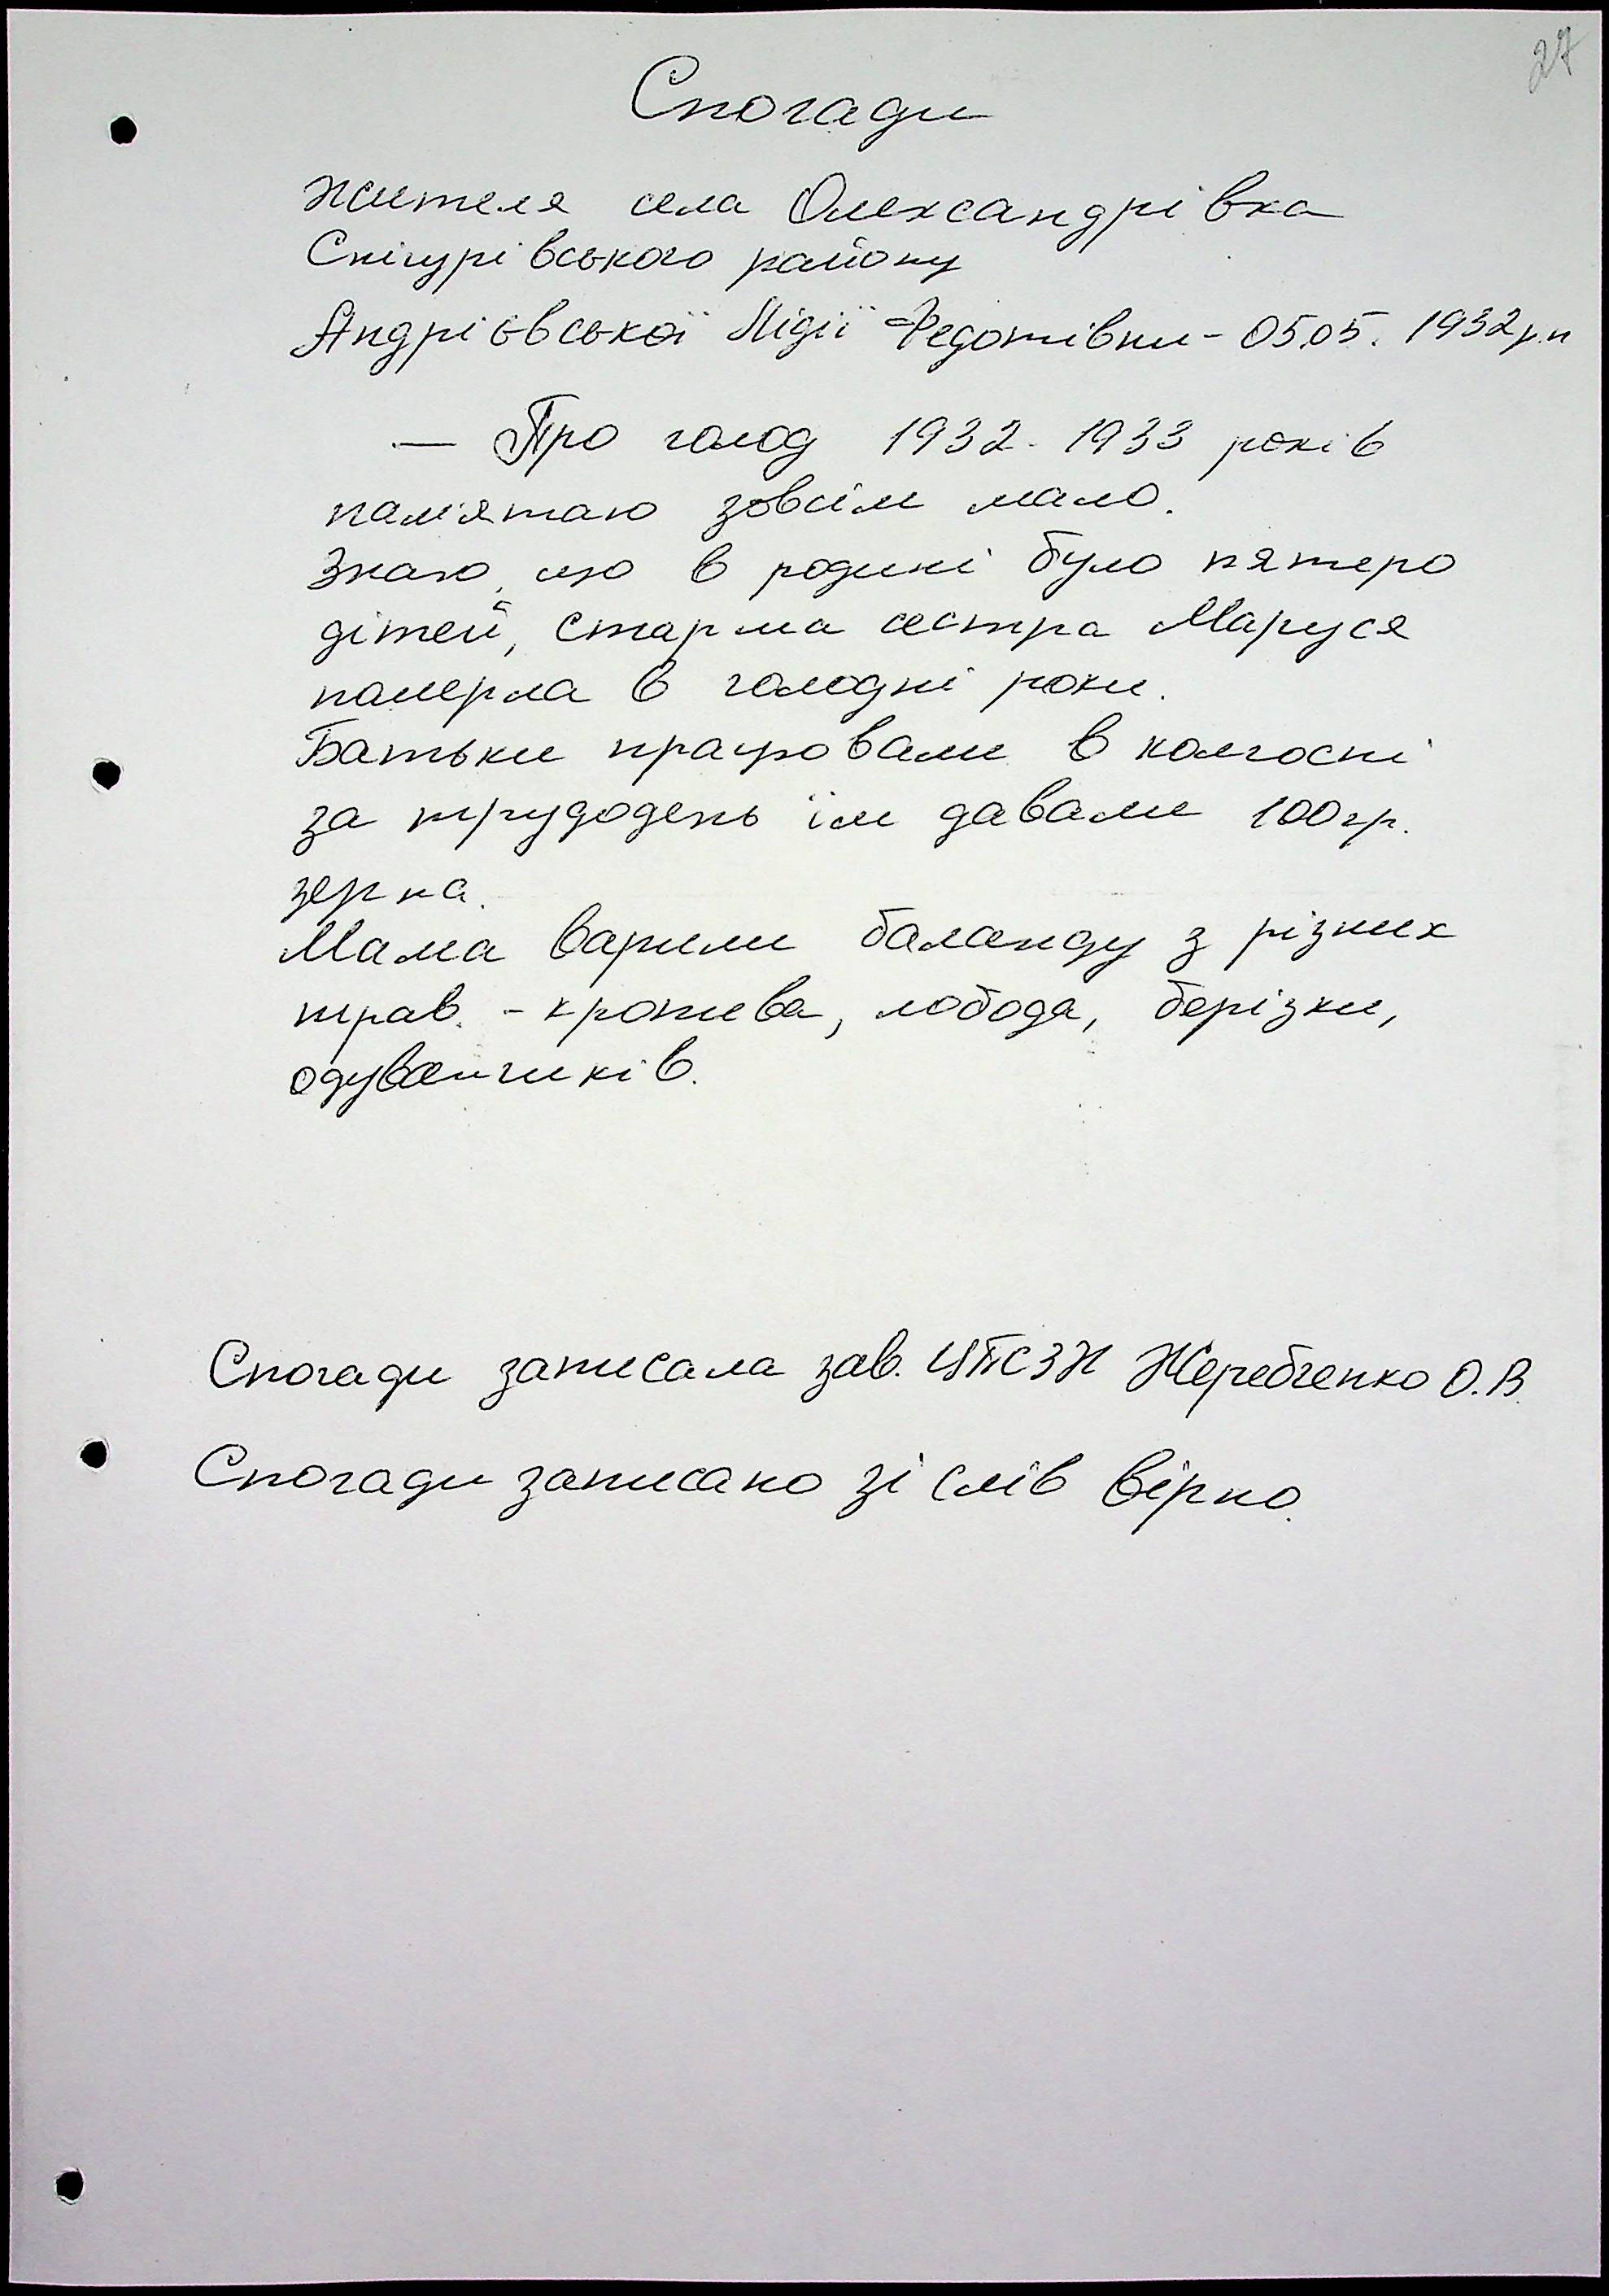 27
Спогади
жителя села Олександрівка
Снігурівського району
Андрієвської Лідії Федотівни - 05.05. 1932 р.н
— Про голод 1932-1933 років
пам'ятаю зовсім мало.
Знаю, що в родині було пятеро
дітей, старша сестра Маруся
померла в голодні роки.
Батьки працювали в колгоспі
за трудодень їм давали 100 гр.
зерна.
Мама варили баланду з різних
трав. - кропива, лобода, берізки,
одуванчиків.
Спогади записала зав. ЦПСЗН Жеребченко О.В.
Спогади записано зі слів вірно.